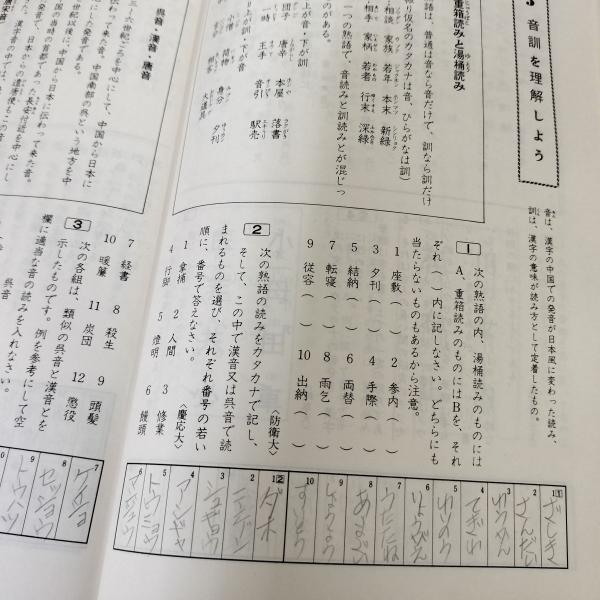 音訓を理解しよう
音は、漢字の中国での発音が日本風に変わった読み、
訓は、漢字の意味が読み方として定着したもの。
重箱読みと湯桶読み
熟語は、普通は音なら音だけで、訓なら訓だけ
振り仮名のカタカナは音、ひらがなは訓)
相談 家族 若年 本末 新緑
相手 家柄 若者 行末 深緑
一つの熟語で、音読みと訓読みとが混じっ
のがある。
上が音・下が訓
団子 唐辛 本屋 落書
一時 王手 音引 駅売
訓・下が音
小僧 荷物 身分 夕刊
大道具
呉音・漢音・唐音
五・六世紀ごろを中心にして、中国から日本に
伝わって来た音。中国南部の呉という地方を中
にした発音である。
1
次の熟語の内、湯桶読みのものには
A、重箱読みのものにはBを、それ
ぞれ( )内に記しなさい。どちらにも
当たらないものもあるから注意。
1 座敷( ) 2 参内( )
3 夕刊( ) 4 手際( )
5 結納( ) 6 両替( )
7 転寝( ) 8 雨乞( )
9 従容( ) 10 出納( )
〈防衛大〉
2
次の熟語の読みをカタカナで記し、
そして、この中で漢音又は呉音で読
まれるものを選び、それぞれ番号の若い
順に、番号で答えなさい。
〈慶応大〉
1 拿捕 2 人間 3 修業
4 行脚 5 燈明 6 饅頭
7 経書 8 殺生 9 頭髪
10 暖簾 11 炭団 12 懲役
3
次の各組は、類似の呉音と漢音とを
示したものです。例を参考にして空
欄に適当な音の読みを入れなさい。
呉音
1
1 ざしき
2 さんだい
3 ゆうかん
4 てぎわ
5 ゆいのう
6 りょうがえ
7 うたたね
8 あまごい
9 しょうよう
10 すいとう
2
1 ダホ
2 ニンゲン
3 シュギョウ
4 アンギャ
5 トウミョウ
6 マンジュウ
7 ケイショ
8 セッショウ
9 トウハツ
10